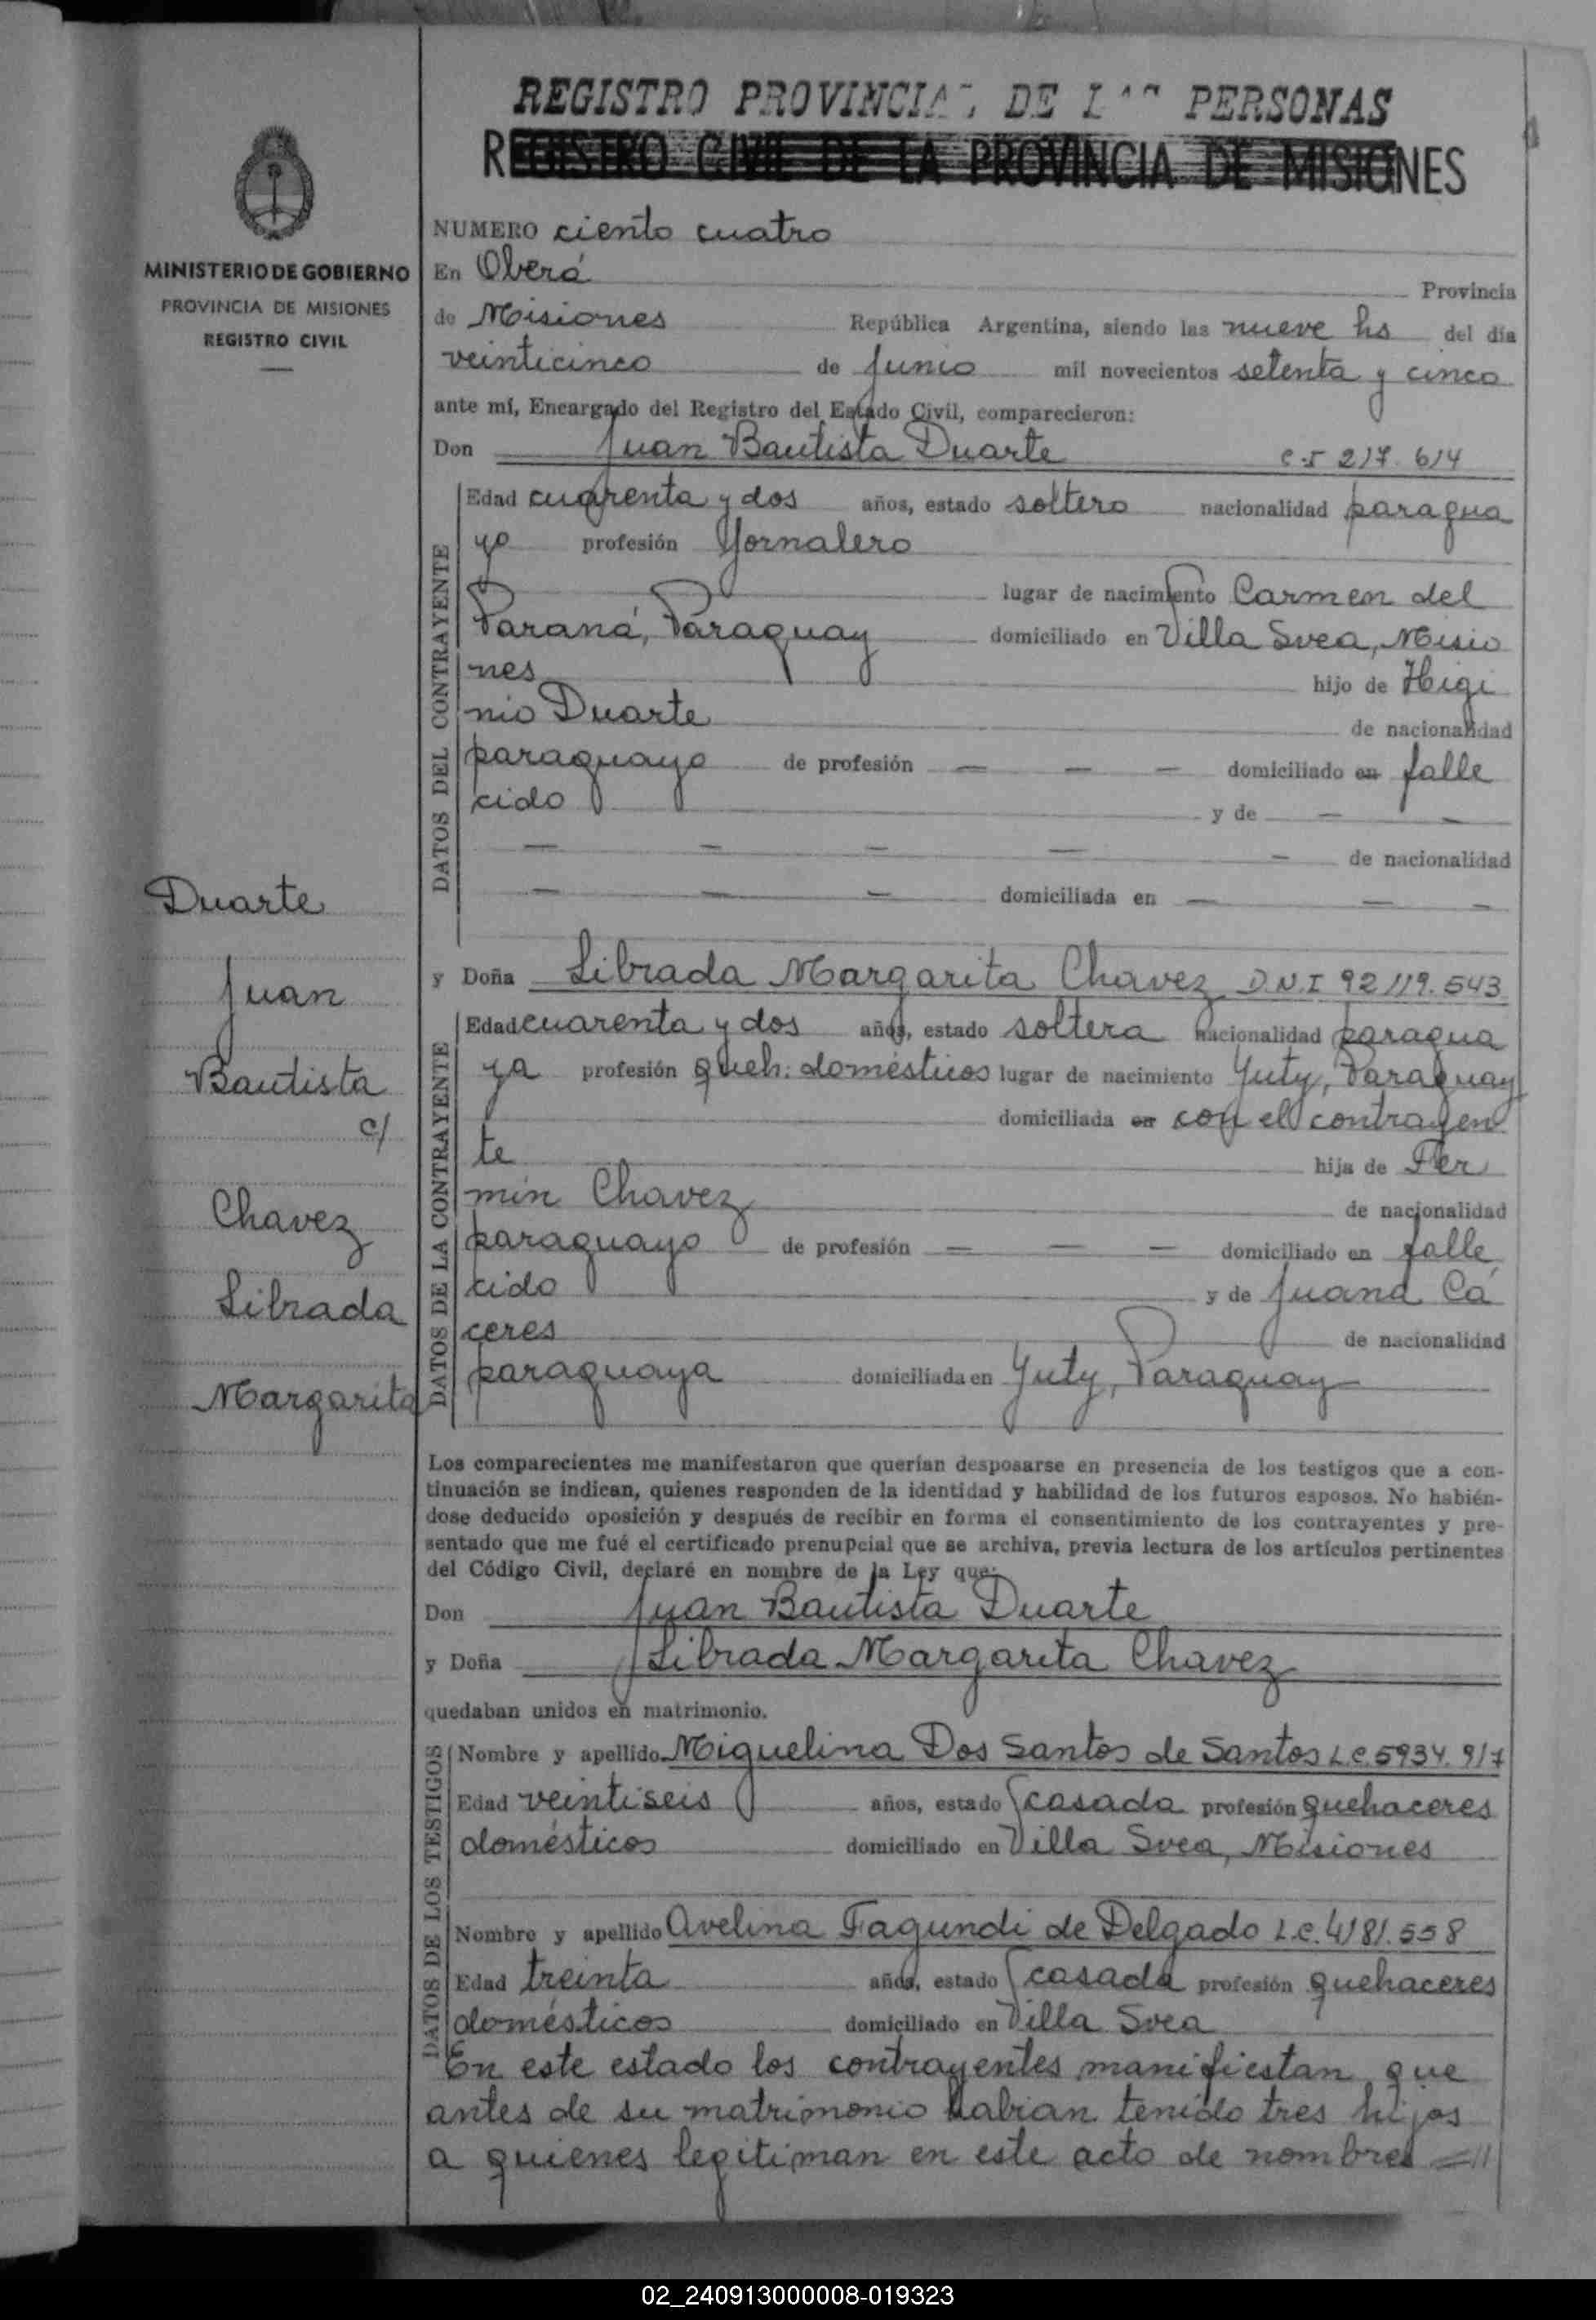 REGISTRO PROVINCIAL DE LAS PERSONAS
REGISTRO CIVIL DE LA PROVINCIA DE MISIONES
MINISTERIO DE GOBIERNO
PROVINCIA DE MISIONES
REGISTRO CIVIL
Duarte
Juan
Bautista
c/
Chavez
Librada
Margarita
NUMERO ciento cuatro
En Oberá Provincia
de Misiones República Argentina, siendo las nueve hs del día
veinticinco de Junio mil novecientos setenta y cinco
ante mí, Encargado del Registro del Estado Civil, comparecieron:
Don Juan Bautista Duarte 217.614
DATOS DEL CONTRAYENTE
Edad cuarenta y dos años, estado soltero nacionalidad paragua
yo profesión Jornalero
lugar de nacimiento Carmen del
Paraná, Paraguay domiciliado en Villa Svea, Misio
nes hijo de Higi
nio Duarte de nacionalidad
paraguayo de profesión — — — domiciliado en falle
cido y de — —
— — — — — de nacionalidad
— — — domiciliada en — — —
y Doña Librada Margarita Chavez D.N.I 92119.543
DATOS DE LA CONTRAYENTE
Edad cuarenta y dos años, estado soltera nacionalidad paragua
ya profesión queh. domésticos lugar de nacimiento Yuty, Paraguay
domiciliada en con el contrayen
te hija de Fer
min Chavez de nacionalidad
paraguayo de profesión — — — domiciliado en falle
cido y de Juana Cá
ceres de nacionalidad
paraguaya domiciliada en Yuty, Paraguay
Los comparecientes me manifestaron que querían desposarse en presencia de los testigos que a con-
tinuación se indican, quienes responden de la identidad y habilidad de los futuros esposos. No habién-
dose deducido oposición y después de recibir en forma el consentimiento de los contrayentes y pre-
sentado que me fué el certificado prenupcial que se archiva, previa lectura de los artículos pertinentes
del Código Civil, declaré en nombre de la Ley que:
Don Juan Bautista Duarte
y Doña Librada Margarita Chavez
quedaban unidos en matrimonio.
DATOS DE LOS TESTIGOS
Nombre y apellido Miguelina Dos Santos de Santos L.C. 5934.917
Edad veintiseis años, estado casada profesión quehaceres
domésticos domiciliado en Villa Svea, Misiones
Nombre y apellido Avelina Fagundi de Delgado L.C. 4181.558
Edad treinta años, estado casada profesión quehaceres
domésticos domiciliado en Villa Svea
En este estado los contrayentes manifiestan que
antes de su matrimonio habian tenido tres hijos
a quienes legitiman en este acto de nombres =//
02_240913000008-019323